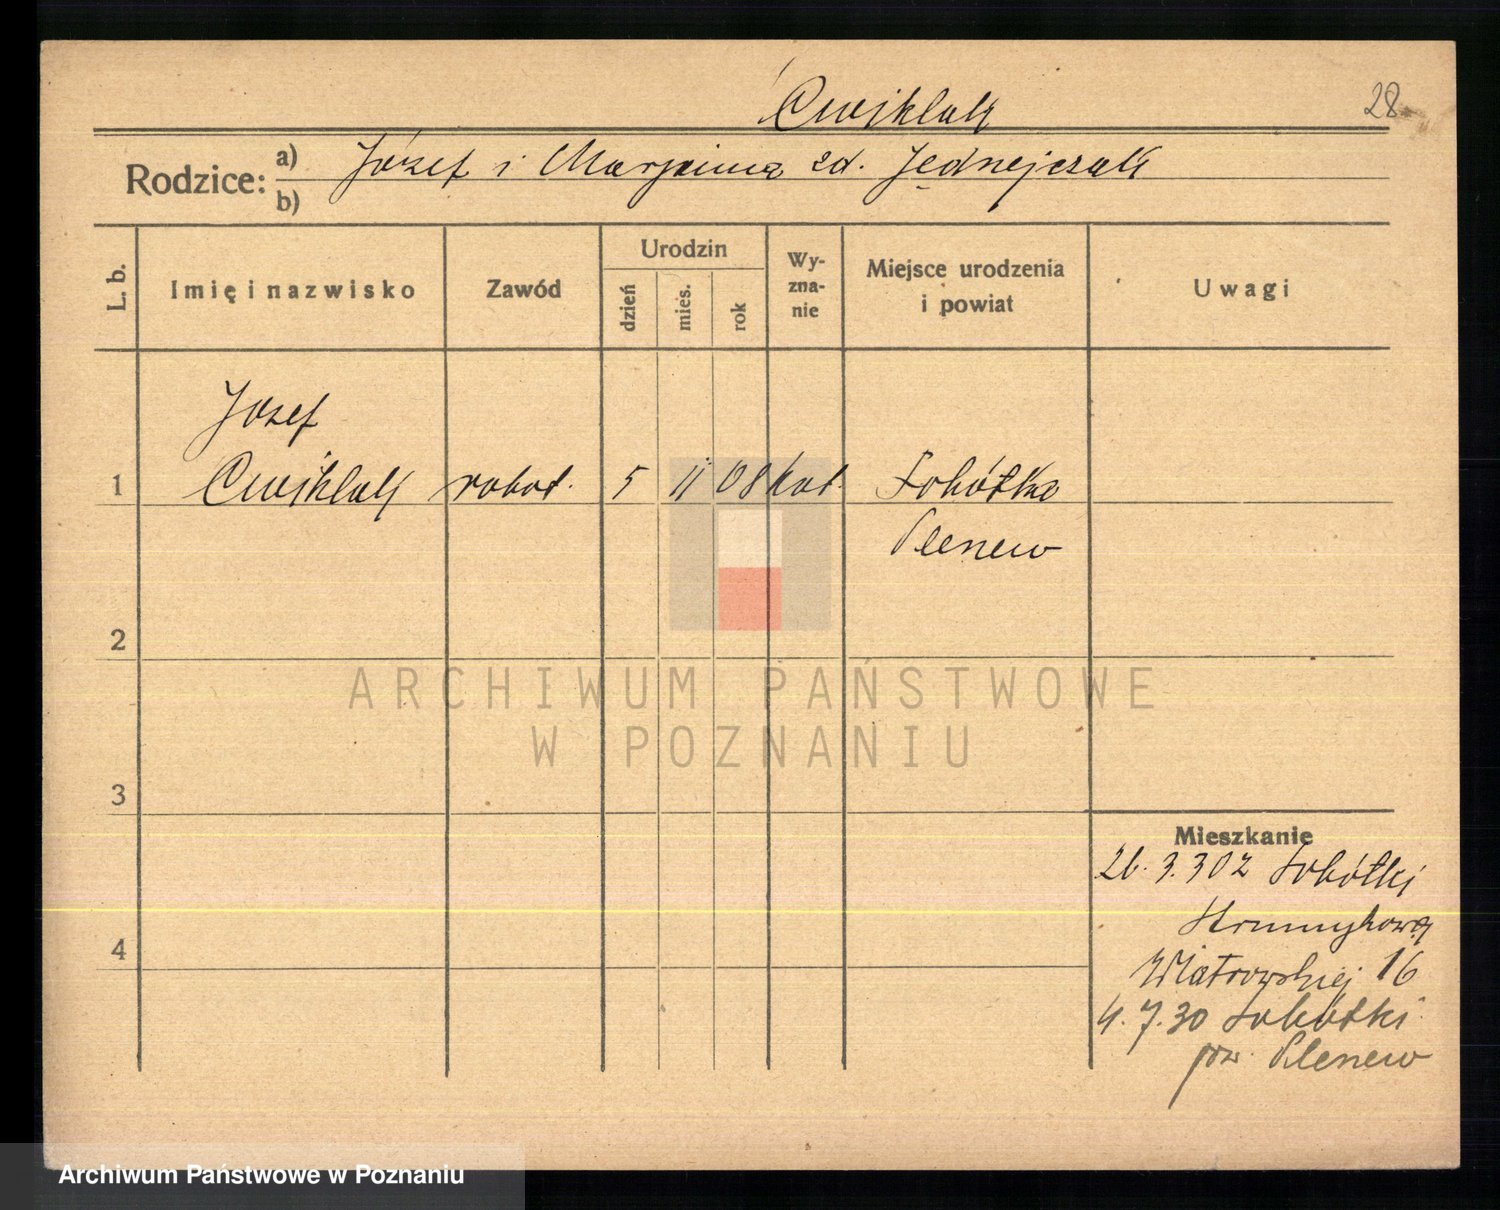 Ćwiklak
28
Rodzice: a) b)
Józef i Marjanna zd. Jędrzejczak
L. b.
Imię i nazwisko
Zawód
Urodzin
dzień
mies.
rok
Wy-
zna-
nie
Miejsce urodzenia
i powiat
Uwagi
Józef
1 Ćwiklak robot. 5 11 08 kat. Sobótka
Pleszew
2
3
4
Mieszkanie
26.3.30 z Sobótki
4.7.30 Sobótki
pow. Pleszew
ARCHIWUM PAŃSTWOWE
W POZNANIU
Archiwum Państwowe w Poznaniu